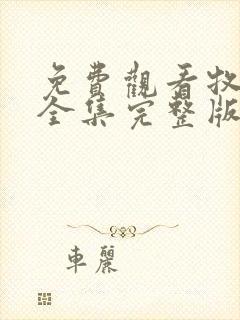 免費觀看牧
全集完整版
車麗